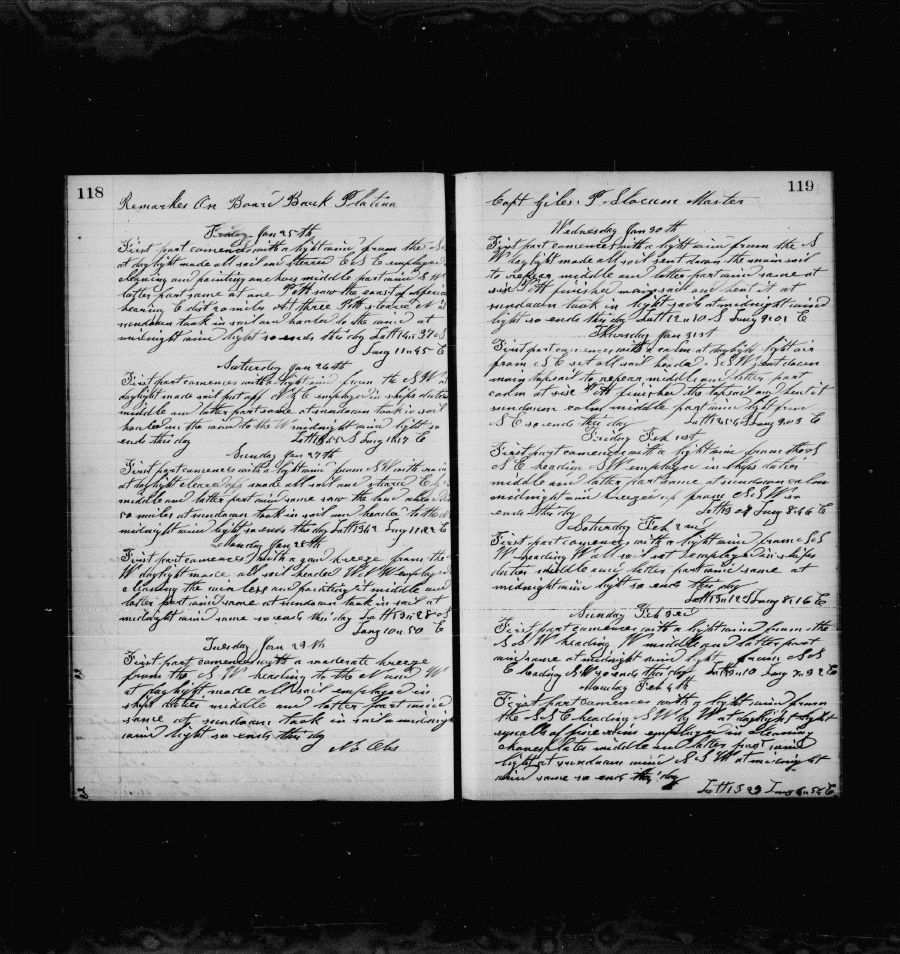 118
Remarkes On Board Bark Platina
Friday Jan 25th
First part comences with a light wind from the
at day light made all sail and steered E S E employed
cleaning and painting anchors middle part wind S W
latter part same at one P M saw the coast of Africa
bearing E dist 20 miles At three P M
sundown tack in sail and headed to the wind at
midnight wind light so ends this day Latt 14 37 S
Long 11 45 E
Saturday Jan 26th
First part comences with a light wind from the S W at
daylight made sail put off employed in ships duties
middle and latter part same at sundown took in sail
headed on the wind to the W midnight wind light so
ends this day Latt 55 S Long E
Sunday Jan 27th
First part comences with a light wind from S W with rain
at daylight cleared off made all sail and steared E by
middle and latter part wind same saw the land
50 miles at sundown took in sail and headed to the
midnight wind light so ends this day Latt Long 11 22 E
Monday Jan 28th
First part comences with a good breeze from the
W daylight made all sail headed W N W employed
cleaning the and painting it middle and
latter part wind same at sundown tack in sail at
midnight wind same so ends this day Latt 13 28 S
Long 10 50 E
Tuesday Jan 29th
First part comences with a moderate breeze
from the S W heading to the N and W
at daylight made all sail employed in
ships duties middle and latter part wind
same at sundown took in sail midnight
wind light so ends this day
No Obs
119
Capt Giles P Slocum Master
Wednesday Jan 30th
First part comences with a light wind from the S
W daylight made all sail sent down the main sail
to repear middle and latter part wind same at
six P M finished main sail and bent it at
sundown took in light sails at midnight wind
light so ends this day Latt 12 10 S Long 9 01 E
Thursday Jan 31st
First part comences with a calm at daylight light air
from S E set all sail headed S S W sent down
main topsail to repear middle and latter part
calm at six P M finished the topsail and bent it
sundown calm middle part wind light from
S E so ends this day Latt Long 9 03 E
Friday Feb 1st
First part comences with a light wind from the S
S E heading S W employed in ships duties
middle and latter part same at sundown calm
midnight wind breezed up from S S W so
ends this day Latt 13 04 Long 8 46 E
Saturday Feb 2nd
First part comences with a light wind from S S
W heading W all sail set employed in ships
duties middle and latter part wind same at
midnight wind light so ends this day
Latt 13 12 S Long 8 16 E
Sunday Feb 3rd
First part comences with a light wind from the
S S W heading W middle and latter part
wind same at midnight wind light from S S
E heading S W so ends this day Latt 13 10 Long 7 32 E
Monday Feb 4th
First part comences with a light wind from
the S S E heading S W by W at daylight light
squalls of employed in cleaning
chaneplates middle and latter part wind
light at sundown wind S S W at midnight
wind same so ends this day
Latt 13 29 Long 6 52 E